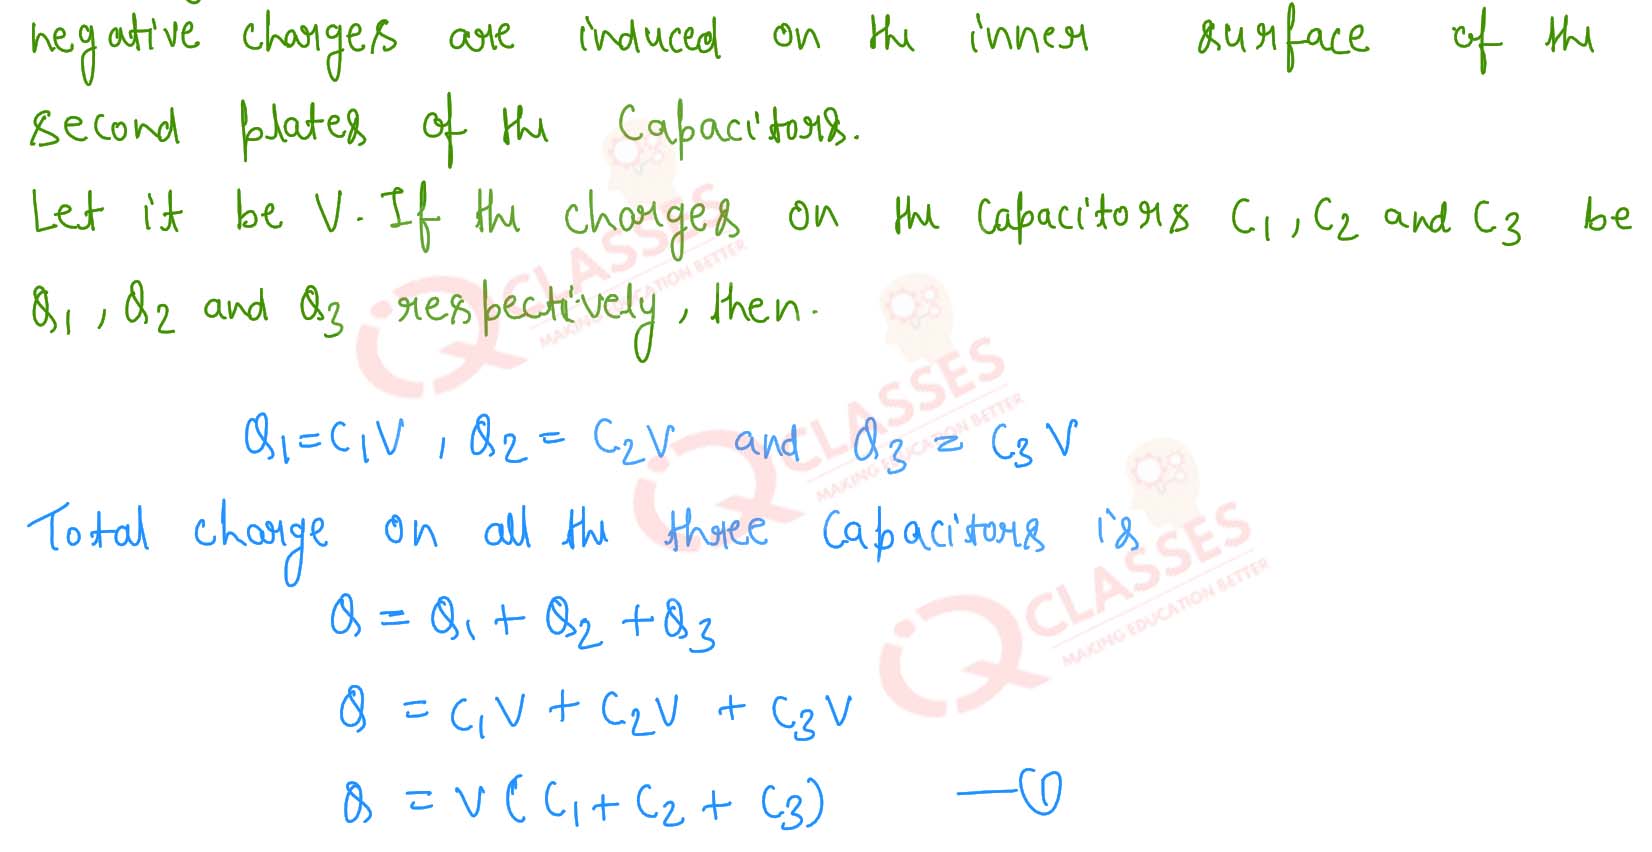 negative charges are induced on the inner surface of the
second plates of the Capacitors.
Let it be V. If the charges on the Capacitors C1, C2 and C3 be
Q1, Q2 and Q3 respectively, then.
Q1 = C1V, Q2 = C2V and Q3 = C3V
Total charge on all the three Capacitors is
Q = Q1 + Q2 + Q3
Q = C1V + C2V + C3V
Q = V(C1 + C2 + C3) —①
iQ CLASSES
MAKING EDUCATION BETTER
iQ CLASSES
MAKING EDUCATION BETTER
iQ CLASSES
MAKING EDUCATION BETTER